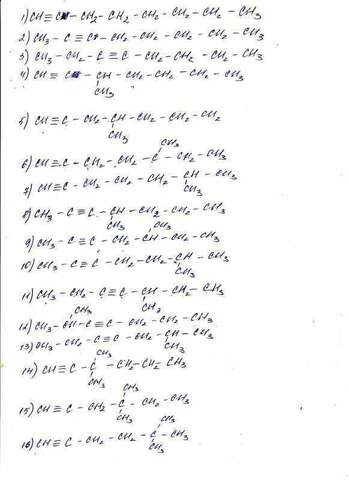 1) CH ≡ C - CH2 - CH2 - CH2 - CH2 - CH2 - CH3
2) CH3 - C ≡ C - CH2 - CH2 - CH2 - CH2 - CH3
3) CH3 - CH2 - C ≡ C - CH2 - CH2 - CH2 - CH3
4) CH ≡ C - CH - CH2 - CH2 - CH2 - CH3
CH3
5) CH ≡ C - CH2 - CH - CH2 - CH2 - CH2
CH3
CH3
6) CH ≡ C - CH2 - CH2 - C - CH2 - CH3
7) CH ≡ C - CH2 - CH2 - CH2 - CH - CH3
CH3
8) CH3 - C ≡ C - CH - CH2 - CH2 - CH3
CH3 CH3
9) CH3 - C ≡ C - CH2 - CH - CH2 - CH3
10) CH3 - C ≡ C - CH2 - CH2 - CH - CH3
CH3
11) CH3 - CH2 - C ≡ C - CH - CH2 - CH3
CH3 CH3
12) CH3 - CH - C ≡ C - CH2 - CH2 - CH3
13) CH3 - CH2 - C ≡ C - CH2 - CH - CH3
CH3 CH3
14) CH ≡ C - C - CH2 - CH2 - CH3
CH3
CH3
15) CH ≡ C - CH2 - C - CH2 - CH3
CH3
CH3
16) CH ≡ C - CH2 - CH2 - C - CH3
CH3